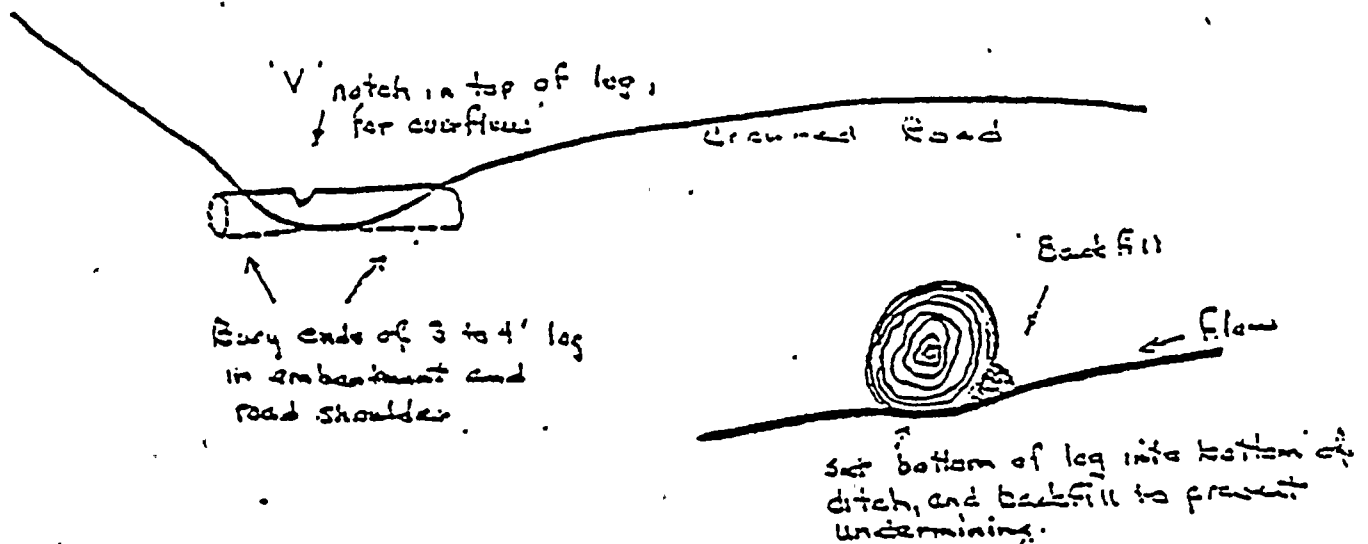 'V' notch in top of log,
for overflow
Crowned Road
Bury ends of 3 to 4' log
in embankment and
road shoulder
Backfill
Flow
set bottom of log into bottom of
ditch, and backfill to prevent
undermining.